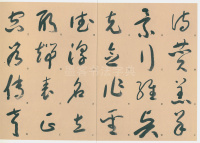 詩讚羔羊
景行維賢
克念作聖
德建名立
形端表正
空谷傳聲